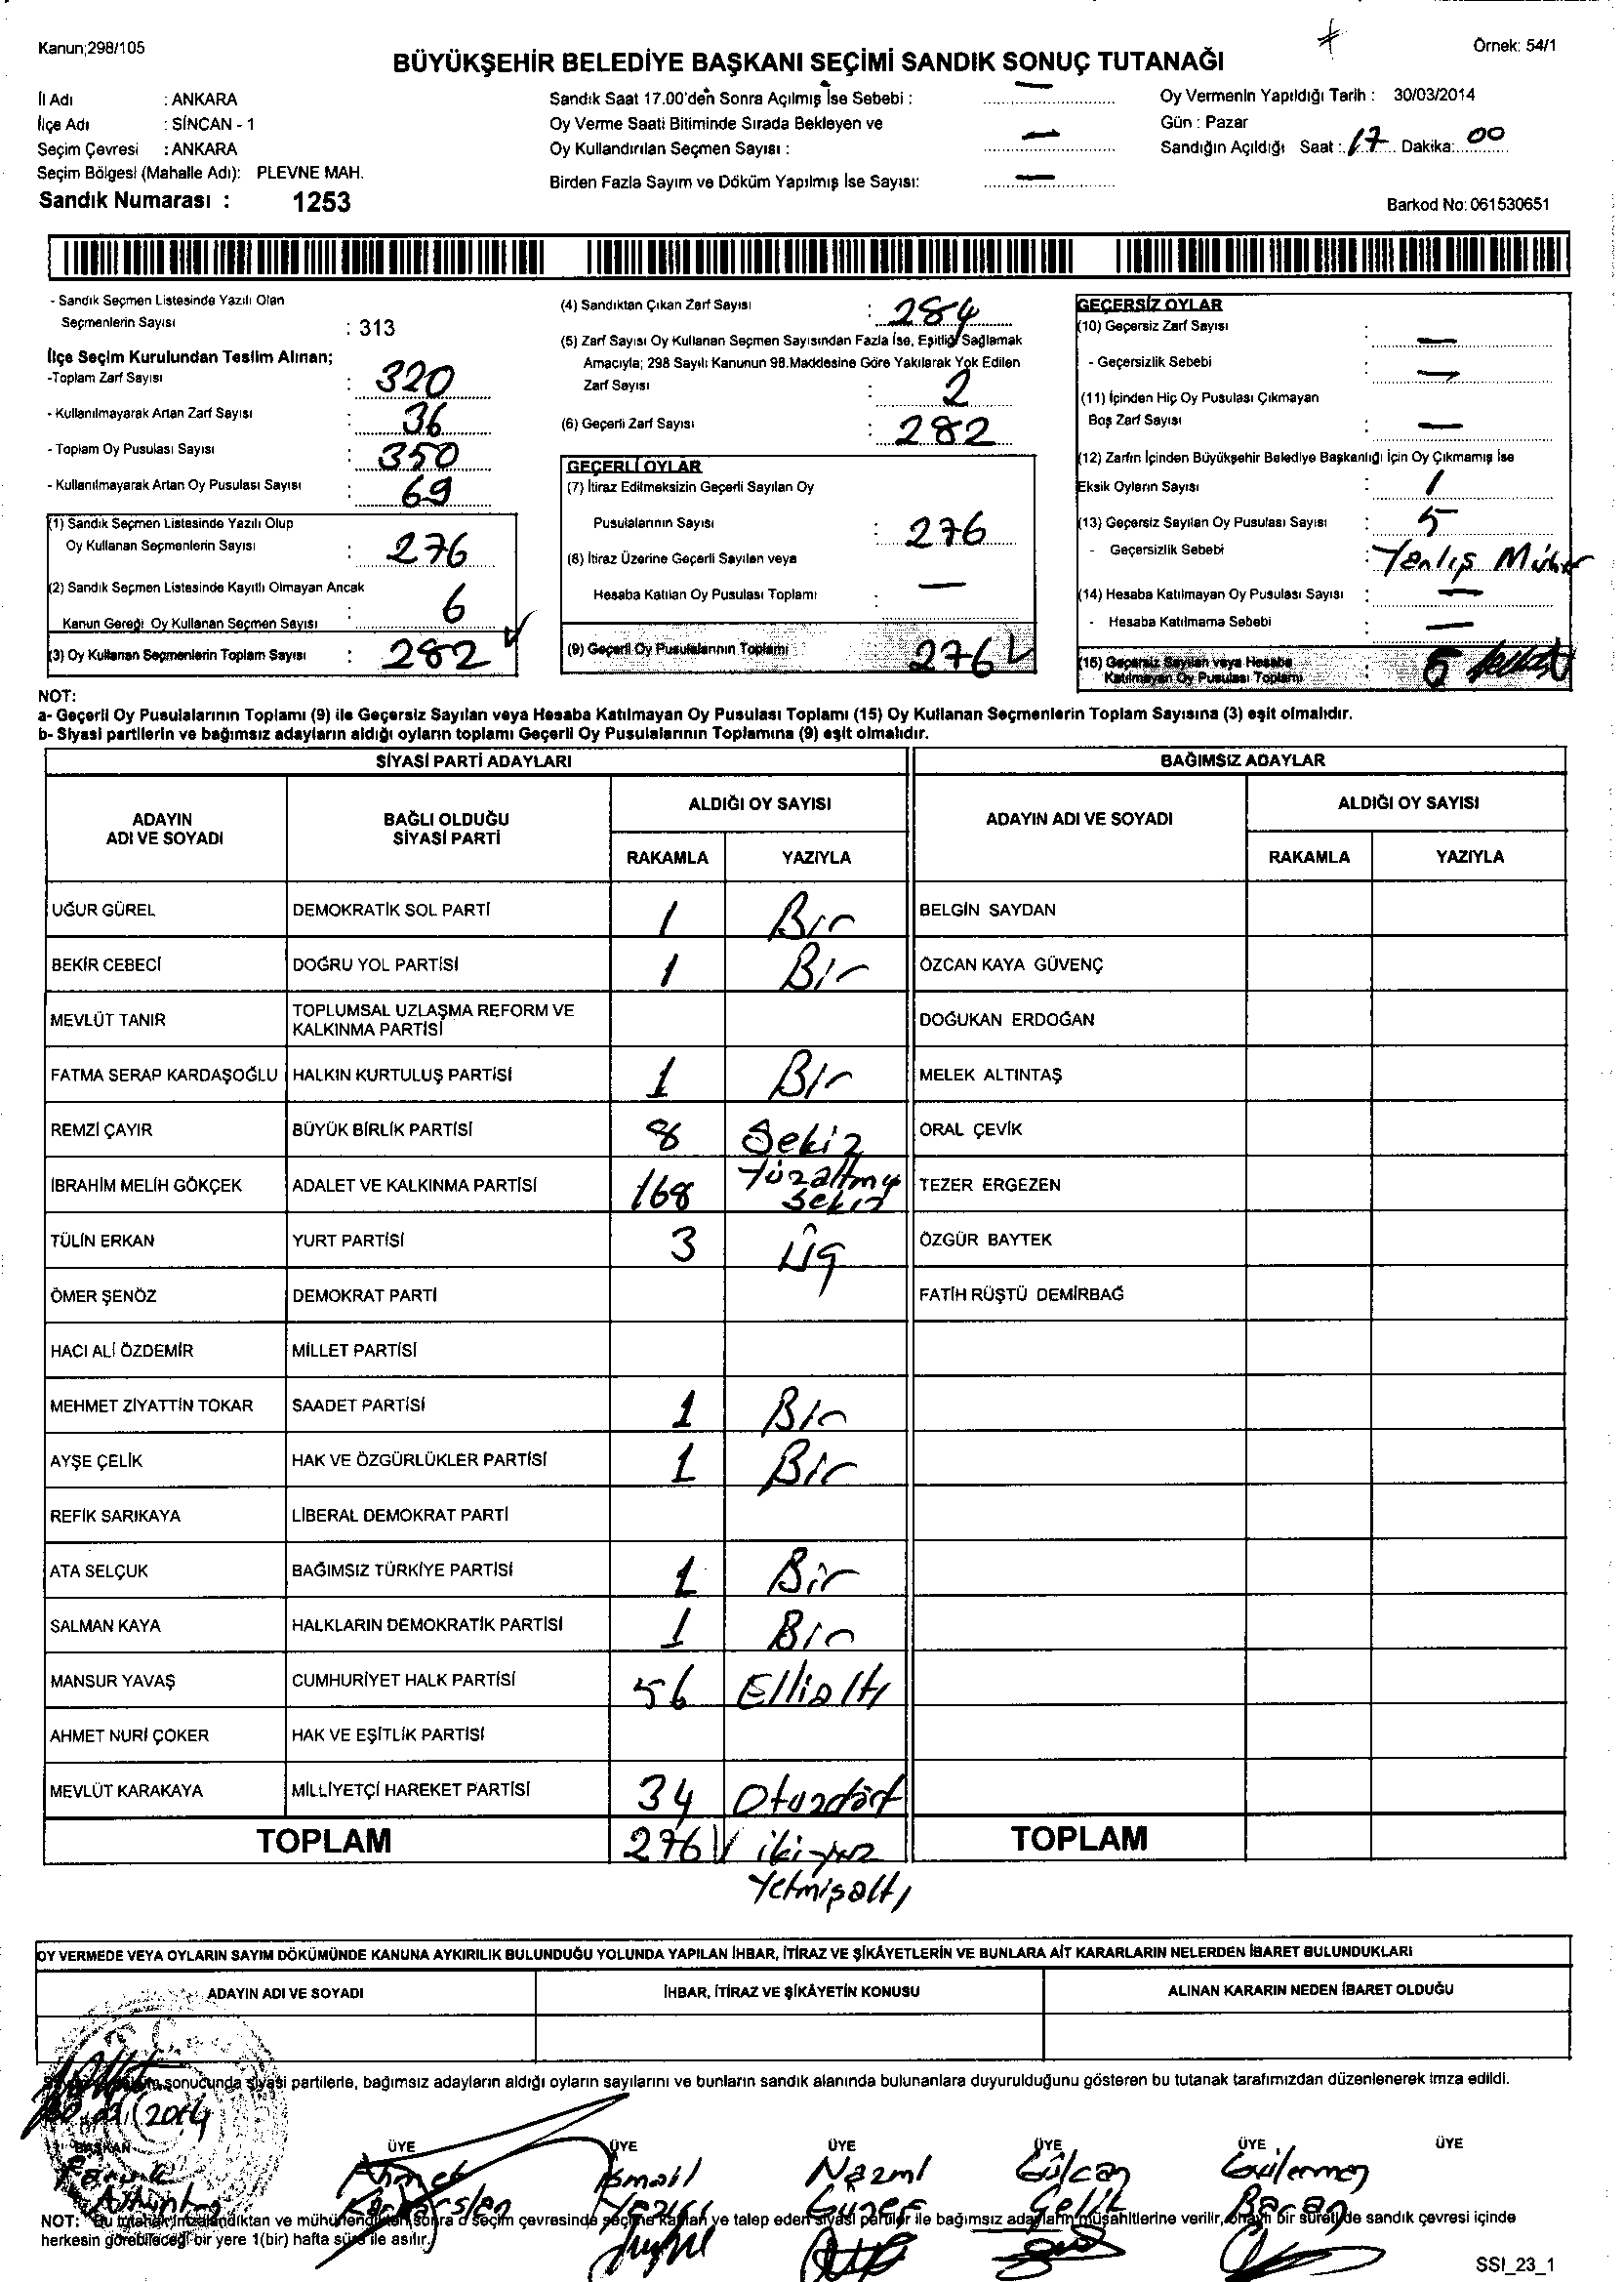 Kanun;298/105
Örnek: 54/1
BÜYÜKŞEHİR BELEDİYE BAŞKANI SEÇİMİ SANDIK SONUÇ TUTANAĞI
İl Adı : ANKARA
İlçe Adı : SİNCAN - 1
Seçim Çevresi : ANKARA
Seçim Bölgesi (Mahalle Adı): PLEVNE MAH.
Sandık Numarası : 1253
Sandık Saat 17.00'den Sonra Açılmış İse Sebebi : —
Oy Verme Saati Bitiminde Sırada Bekleyen ve
Oy Kullandırılan Seçmen Sayısı : —
Birden Fazla Sayım ve Döküm Yapılmış İse Sayısı: —
Oy Vermenin Yapıldığı Tarih : 30/03/2014
Gün : Pazar
Sandığın Açıldığı Saat : 17 Dakika: 00
Barkod No: 061530651
- Sandık Seçmen Listesinde Yazılı Olan
Seçmenlerin Sayısı : 313
İlçe Seçim Kurulundan Teslim Alınan;
-Toplam Zarf Sayısı : 320
- Kullanılmayarak Artan Zarf Sayısı : 36
- Toplam Oy Pusulası Sayısı : 350
- Kullanılmayarak Artan Oy Pusulası Sayısı : 69
(1) Sandık Seçmen Listesinde Yazılı Olup
Oy Kullanan Seçmenlerin Sayısı : 276
(2) Sandık Seçmen Listesinde Kayıtlı Olmayan Ancak
Kanun Gereği Oy Kullanan Seçmen Sayısı : 6
(3) Oy Kullanan Seçmenlerin Toplam Sayısı : 282
(4) Sandıktan Çıkan Zarf Sayısı : 284
(5) Zarf Sayısı Oy Kullanan Seçmen Sayısından Fazla İse, Eşitliği Sağlamak
Amacıyla; 298 Sayılı Kanunun 98.Maddesine Göre Yakılarak Yok Edilen
Zarf Sayısı : 2
(6) Geçerli Zarf Sayısı : 282
GEÇERLİ OYLAR
(7) İtiraz Edilmeksizin Geçerli Sayılan Oy
Pusulalarının Sayısı : 276
(8) İtiraz Üzerine Geçerli Sayılan veya
Hesaba Katılan Oy Pusulası Toplamı : —
(9) Geçerli Oy Pusulalarının Toplamı 276
GEÇERSİZ OYLAR
(10) Geçersiz Zarf Sayısı : —
- Geçersizlik Sebebi : —
(11) İçinden Hiç Oy Pusulası Çıkmayan
Boş Zarf Sayısı : —
(12) Zarfın İçinden Büyükşehir Belediye Başkanlığı İçin Oy Çıkmamış İse
Eksik Oyların Sayısı : 1
(13) Geçersiz Sayılan Oy Pusulası Sayısı : 5
- Geçersizlik Sebebi : Yanlış Mühür
(14) Hesaba Katılmayan Oy Pusulası Sayısı : —
- Hesaba Katılmama Sebebi : —
(15) Geçersiz Sayılan veya Hesaba
Katılmayan Oy Pusulası Toplamı : 5
NOT:
a- Geçerli Oy Pusulalarının Toplamı (9) ile Geçersiz Sayılan veya Hesaba Katılmayan Oy Pusulası Toplamı (15) Oy Kullanan Seçmenlerin Toplam Sayısına (3) eşit olmalıdır.
b- Siyasi partilerin ve bağımsız adayların aldığı oyların toplamı Geçerli Oy Pusulalarının Toplamına (9) eşit olmalıdır.
SİYASİ PARTİ ADAYLARI
BAĞIMSIZ ADAYLAR
ADAYIN
ADI VE SOYADI
BAĞLI OLDUĞU
SİYASİ PARTİ
ALDIĞI OY SAYISI
RAKAMLA YAZIYLA
ADAYIN ADI VE SOYADI
ALDIĞI OY SAYISI
RAKAMLA YAZIYLA
UĞUR GÜREL DEMOKRATİK SOL PARTİ 1 Bir BELGİN SAYDAN
BEKİR CEBECİ DOĞRU YOL PARTİSİ 1 Bir ÖZCAN KAYA GÜVENÇ
MEVLÜT TANIR TOPLUMSAL UZLAŞMA REFORM VE
KALKINMA PARTİSİ DOĞUKAN ERDOĞAN
FATMA SERAP KARDAŞOĞLU HALKIN KURTULUŞ PARTİSİ 1 Bir MELEK ALTINTAŞ
REMZİ ÇAYIR BÜYÜK BİRLİK PARTİSİ 8 Sekiz ORAL ÇEVİK
İBRAHİM MELİH GÖKÇEK ADALET VE KALKINMA PARTİSİ 168 Yüzaltmış Sekiz TEZER ERGEZEN
TÜLİN ERKAN YURT PARTİSİ 3 Üç ÖZGÜR BAYTEK
ÖMER ŞENÖZ DEMOKRAT PARTİ FATİH RÜŞTÜ DEMİRBAĞ
HACI ALİ ÖZDEMİR MİLLET PARTİSİ
MEHMET ZİYATTİN TOKAR SAADET PARTİSİ 1 Bir
AYŞE ÇELİK HAK VE ÖZGÜRLÜKLER PARTİSİ 1 Bir
REFİK SARIKAYA LİBERAL DEMOKRAT PARTİ
ATA SELÇUK BAĞIMSIZ TÜRKİYE PARTİSİ 1 Bir
SALMAN KAYA HALKLARIN DEMOKRATİK PARTİSİ 1 Bir
MANSUR YAVAŞ CUMHURİYET HALK PARTİSİ 56 Ellialtı
AHMET NURİ ÇOKER HAK VE EŞİTLİK PARTİSİ
MEVLÜT KARAKAYA MİLLİYETÇİ HAREKET PARTİSİ 34 Otuzdört
TOPLAM 276 ikiyüz
Yetmişaltı
TOPLAM
OY VERMEDE VEYA OYLARIN SAYIM DÖKÜMÜNDE KANUNA AYKIRILIK BULUNDUĞU YOLUNDA YAPILAN İHBAR, İTİRAZ VE ŞİKÂYETLERİN VE BUNLARA AİT KARARLARIN NELERDEN İBARET BULUNDUKLARI
ADAYIN ADI VE SOYADI İHBAR, İTİRAZ VE ŞİKÂYETİN KONUSU ALINAN KARARIN NEDEN İBARET OLDUĞU
sonucunda siyasi partilerle, bağımsız adayların aldığı oyların sayılarını ve bunların sandık alanında bulunanlara duyurulduğunu gösteren bu tutanak tarafımızdan düzenlenerek imza edildi.
2014
BAŞKAN ÜYE ÜYE ÜYE ÜYE ÜYE ÜYE
Ahmet İsmail Nazmi Gülcan
NOT: Bu tutanak imzalandıktan ve mühürlendikten sonra o seçim çevresinde seçime katılan ve talep eden siyasi partiler ile bağımsız adayların müşahitlerine verilir, onaylı bir sureti de sandık çevresi içinde
herkesin görebileceği bir yere 1(bir) hafta süre ile asılır.
SSI_23_1